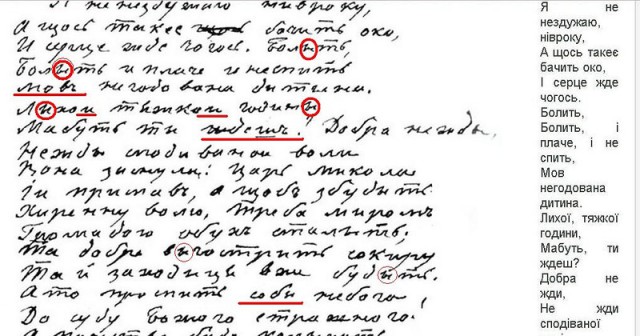 Я не нездужаю нивроку,
А щось такеє бачить око,
И серце жде чогось. Болить,
Болить и плаче и неспить
мовъ негодована дитина.
Лихои тяжкои годины
Мабуть ти ждешъ? Добра нежды,
Нежды сподиванои воли
Вона заснула: Царь Микола
Іи приспавъ, а щобъ збудить
Хиренну волю, треба миромъ
Громадою обухъ сталить.
Та добре вигострить сокиру
Та й заходиця вже будить.
А то проспить соби небога,
До суду божого страшного.
Я не
нездужаю,
нівроку,
А щось такеє
бачить око,
І серце жде
чогось.
Болить,
Болить, і
плаче, і не
спить,
Мов
негодована
дитина.
Лихої, тяжкої
години,
Мабуть, ти
ждеш?
Добра не
жди,
Не жди
сподіваної